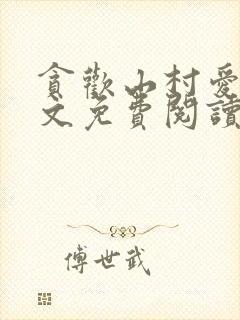 貪歡山村愛
文免費閱讀
傅世武